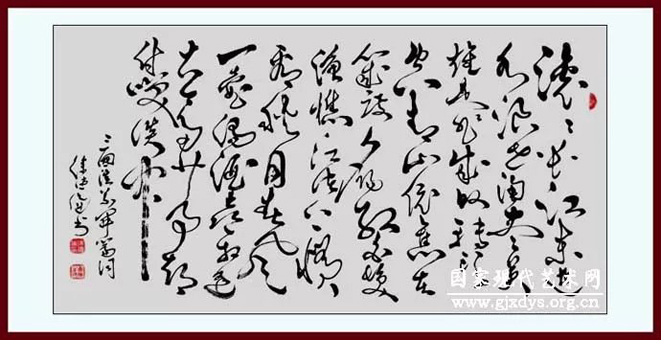 滚滚长江东逝
水浪花淘尽英
雄是非成败转头
空青山依旧在
几度夕阳红白发
渔樵江渚上惯
看秋月春风
一壶浊酒喜相逢
古今多少事都
付笑谈中
三国演义开篇词
书
国家现代艺术网
www.gjxdys.org.cn